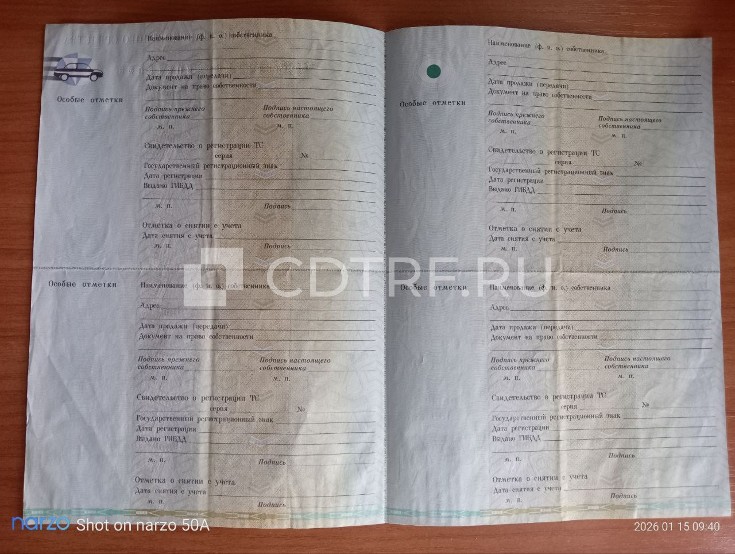 Особые отметки
Наименование (ф. и. о.) собственника
Адрес
Дата продажи (передачи)
Документ на право собственности
Подпись прежнего собственника
Подпись настоящего собственника
м. п.
м. п.
Свидетельство о регистрации ТС
серия
№
Государственный регистрационный знак
Дата регистрации
Выдано ГИБДД
м. п.
Подпись
Отметка о снятии с учета
Дата снятия с учета
м. п.
Подпись
Особые отметки
Наименование (ф. и. о.) собственника
Адрес
Дата продажи (передачи)
Документ на право собственности
Подпись прежнего собственника
Подпись настоящего собственника
м. п.
м. п.
Свидетельство о регистрации ТС
серия
№
Государственный регистрационный знак
Дата регистрации
Выдано ГИБДД
м. п.
Подпись
Отметка о снятии с учета
Дата снятия с учета
м. п.
Подпись
CDTRF.RU
Особые отметки
Наименование (ф. и. о.) собственника
Адрес
Дата продажи (передачи)
Документ на право собственности
Подпись прежнего собственника
Подпись настоящего собственника
м. п.
м. п.
Свидетельство о регистрации ТС
серия
№
Государственный регистрационный знак
Дата регистрации
Выдано ГИБДД
м. п.
Подпись
Отметка о снятии с учета
Дата снятия с учета
м. п.
Подпись
Особые отметки
Наименование (ф. и. о.) собственника
Адрес
Дата продажи (передачи)
Документ на право собственности
Подпись прежнего собственника
Подпись настоящего собственника
м. п.
м. п.
Свидетельство о регистрации ТС
серия
№
Государственный регистрационный знак
Дата регистрации
Выдано ГИБДД
м. п.
Подпись
Отметка о снятии с учета
Дата снятия с учета
м. п.
Подпись
narzo Shot on narzo 50A
2026 01 15 09:40